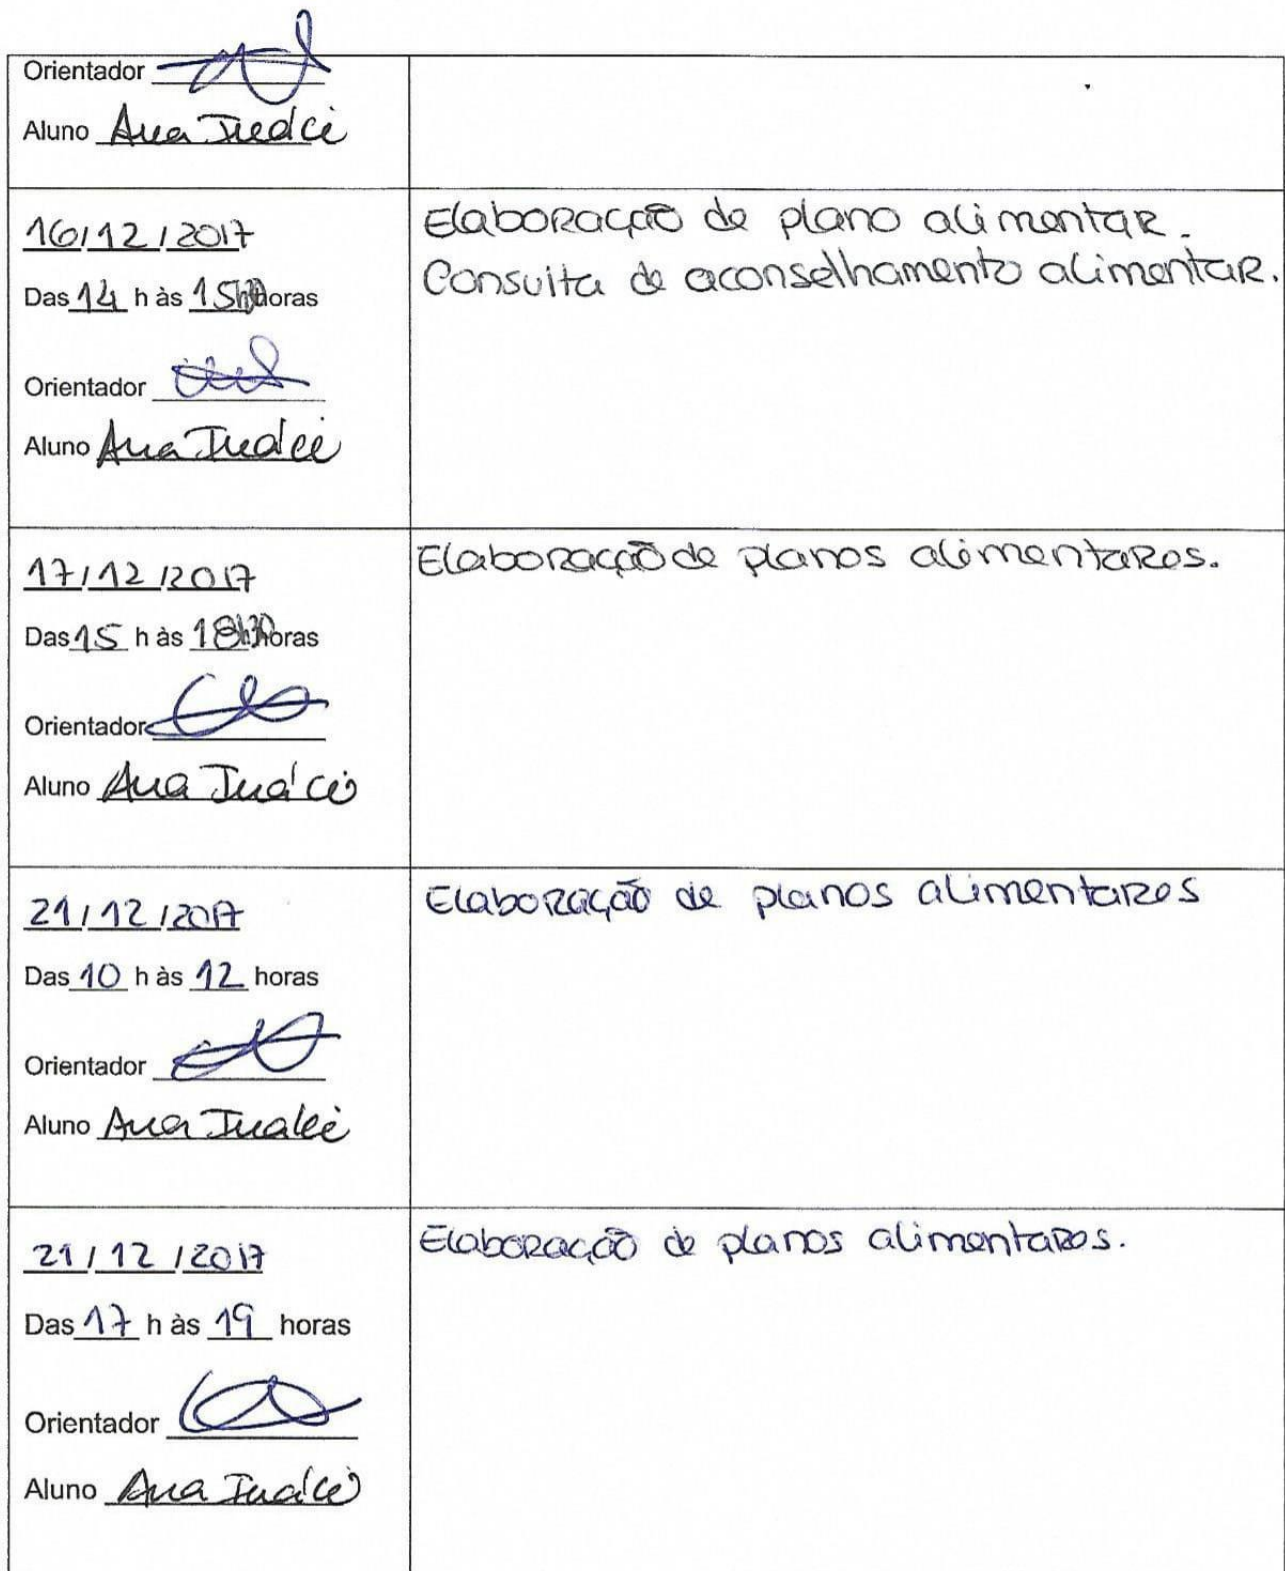 Orientador
Aluno Ana Inácio
16/12/2017
Das 14 h às 15h30 horas
Orientador
Aluno Ana Inácio
Elaboração de plano alimentar.
Consulta de aconselhamento alimentar.
17/12/2017
Das 15 h às 18h30 horas
Orientador
Aluno Ana Inácio
Elaboração de planos alimentares.
21/12/2017
Das 10 h às 12 horas
Orientador
Aluno Ana Inácio
Elaboração de planos alimentares
21/12/2017
Das 17 h às 19 horas
Orientador
Aluno Ana Inácio
Elaboração de planos alimentares.